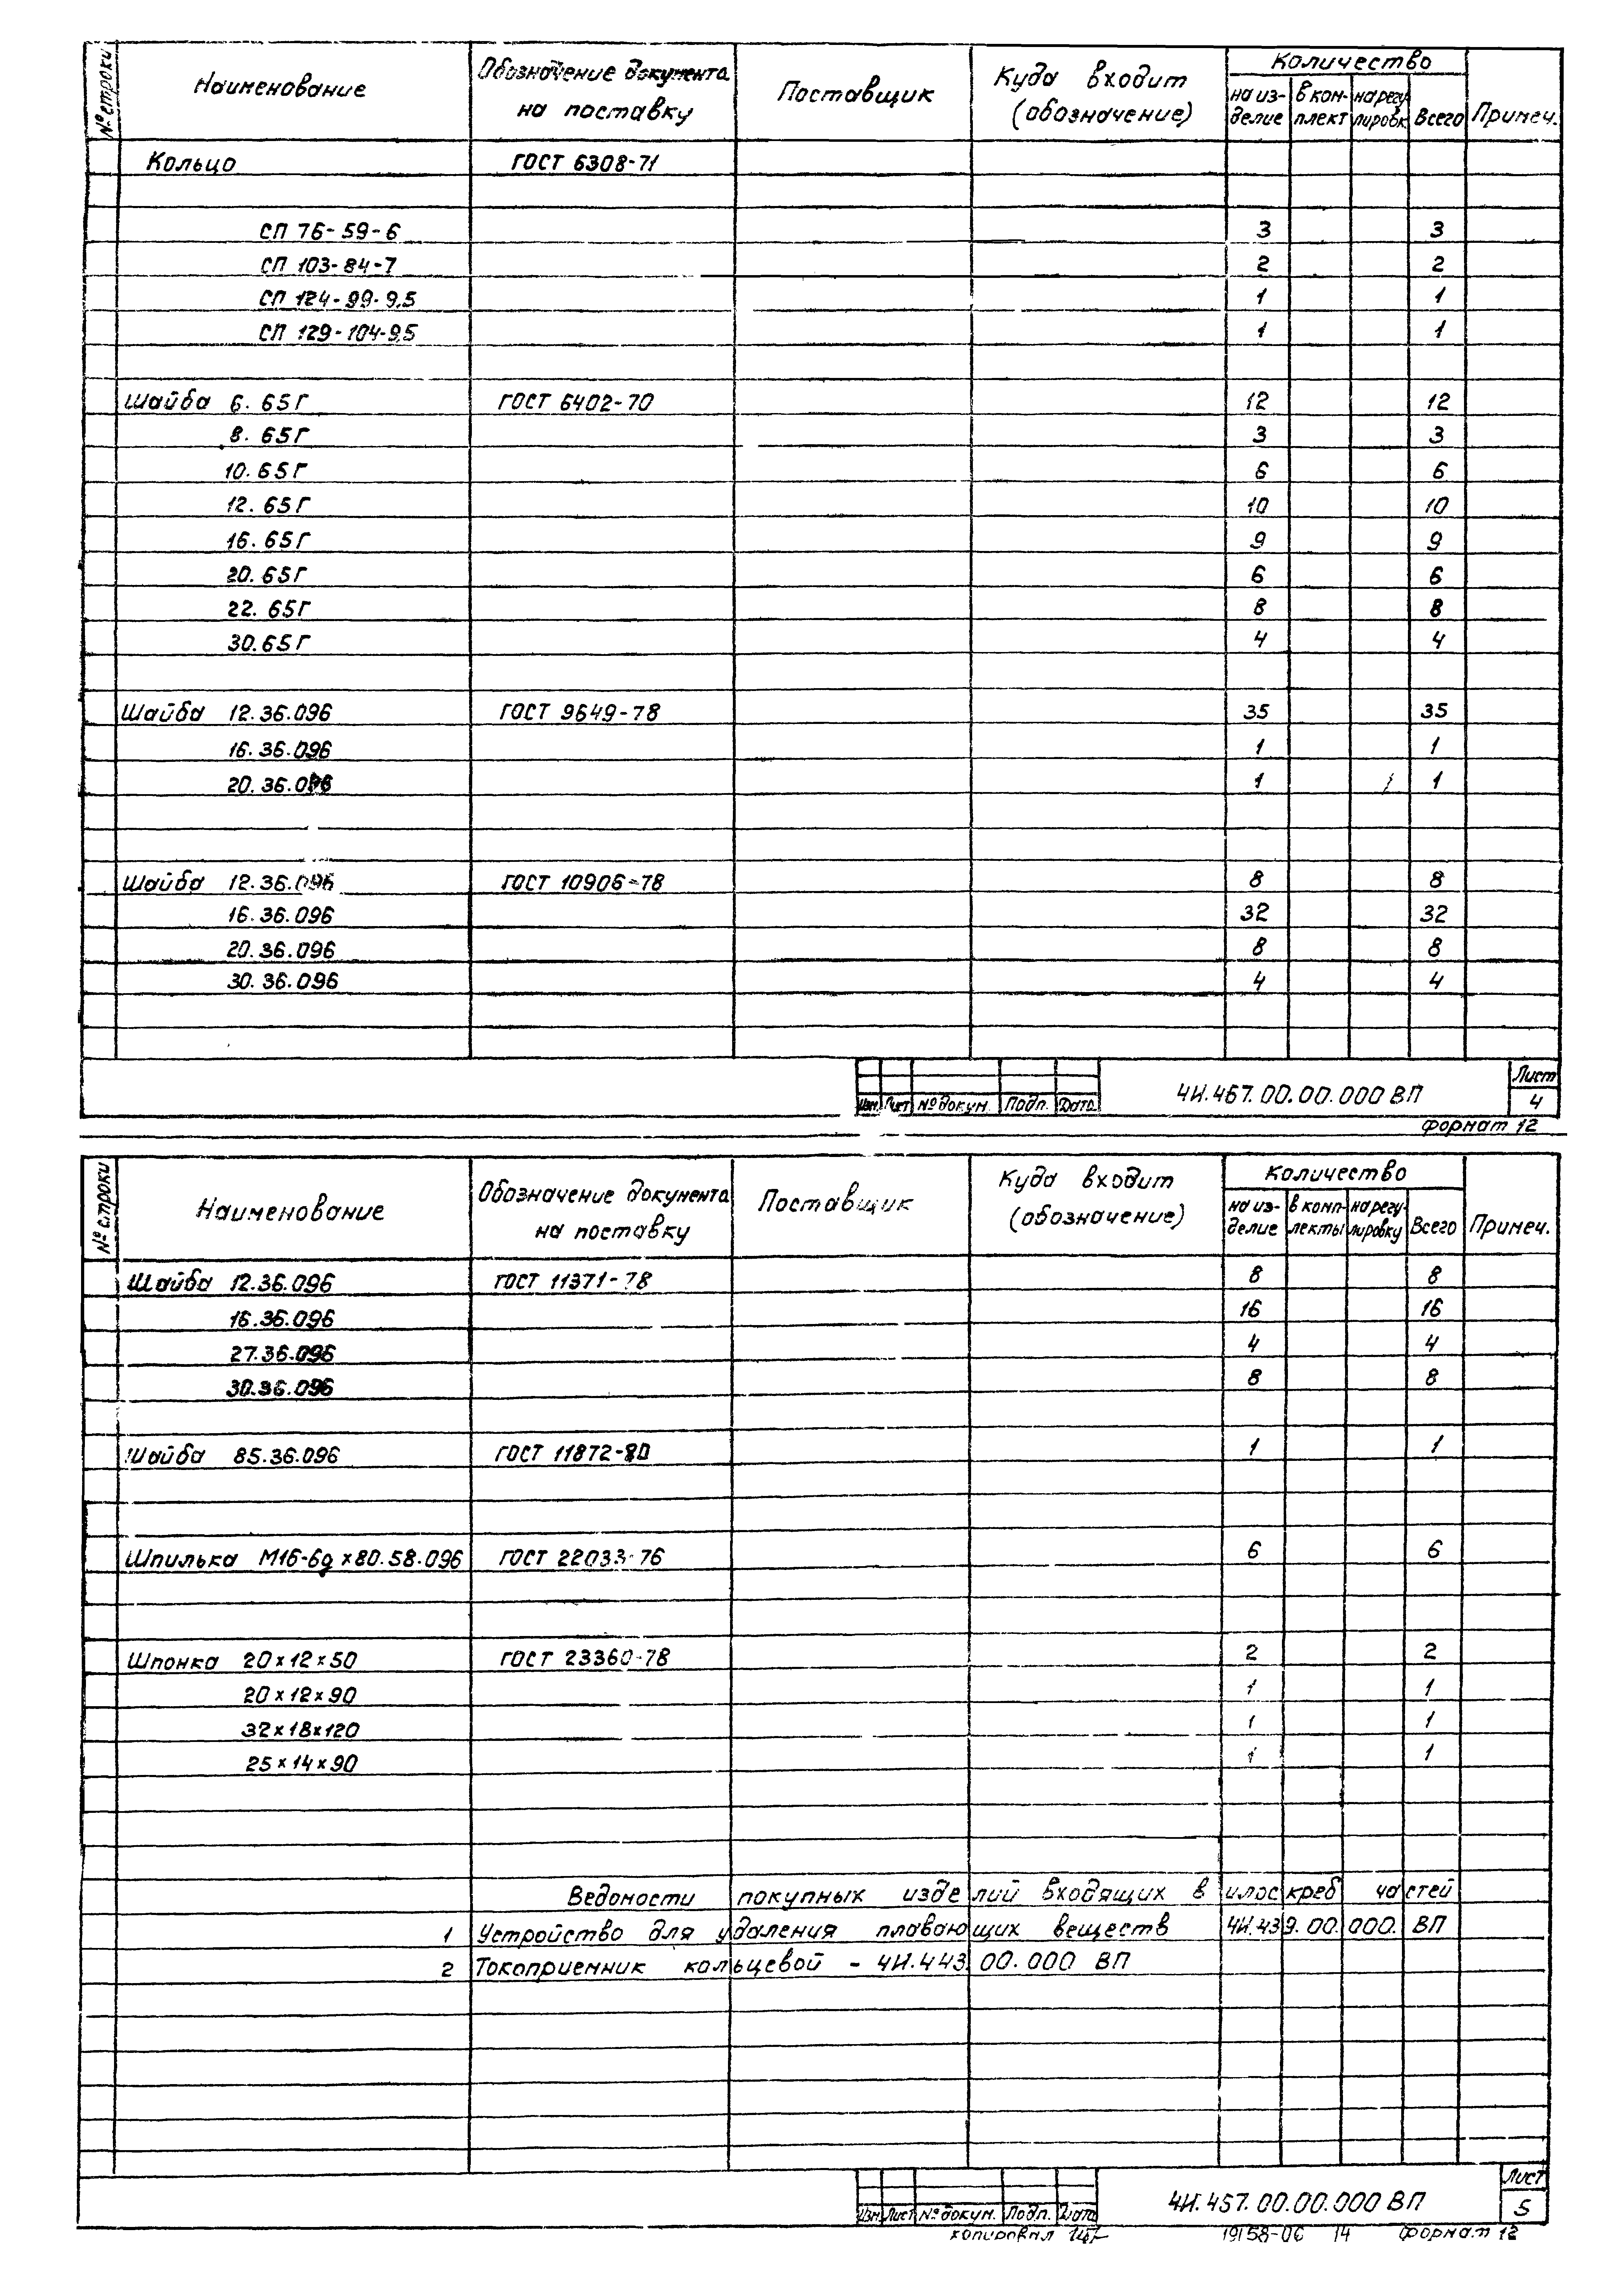 № строки Наименование Обозначение документа на поставку Поставщик Куда входит (обозначение) Количество на из-делие в ком-плект на регу-лировк Всего Примеч.
Кольцо ГОСТ 6308-71
СП 76-59-6 3 3
СП 103-84-7 2 2
СП 124-99-9,5 1 1
СП 129-104-9,5 1 1
Шайба 6. 65Г ГОСТ 6402-70 12 12
8. 65Г 3 3
10. 65Г 6 6
12. 65Г 10 10
16. 65Г 9 9
20. 65Г 6 6
22. 65Г 8 8
30. 65Г 4 4
Шайба 12.36.096 ГОСТ 9649-78 35 35
16.36.096 1 1
20.36.096 1 1
Шайба 12.36.096 ГОСТ 10906-78 8 8
16.36.096 32 32
20.36.096 8 8
30.36.096 4 4
Изм Лист № докум. Подп. Дата 4И.467.00.00.000 ВП Лист 4
Формат 12
№ строки Наименование Обозначение документа на поставку Поставщик Куда входит (обозначение) Количество на из-делие в комп-лекты на регу-лировку Всего Примеч.
Шайба 12.36.096 ГОСТ 11371-78 8 8
16.36.096 16 16
27.36.096 4 4
30.36.096 8 8
Шайба 85.36.096 ГОСТ 11872-80 1 1
Шпилька М16-6g х80.58.096 ГОСТ 22033-76 6 6
Шпонка 20х12х50 ГОСТ 23360-78 2 2
20х12х90 1 1
32х18х120 1 1
25х14х90 1 1
Ведомости покупных изделий входящих в илоскреб частей
1 Устройство для удаления плавающих веществ 4И.439.00.000. ВП
2 Токоприемник кольцевой - 4И.443.00.000 ВП
Изм Лист № докум. Подп. Дата 4И.457.00.00.000 ВП Лист 5
копировал 19158-06 14 Формат 12